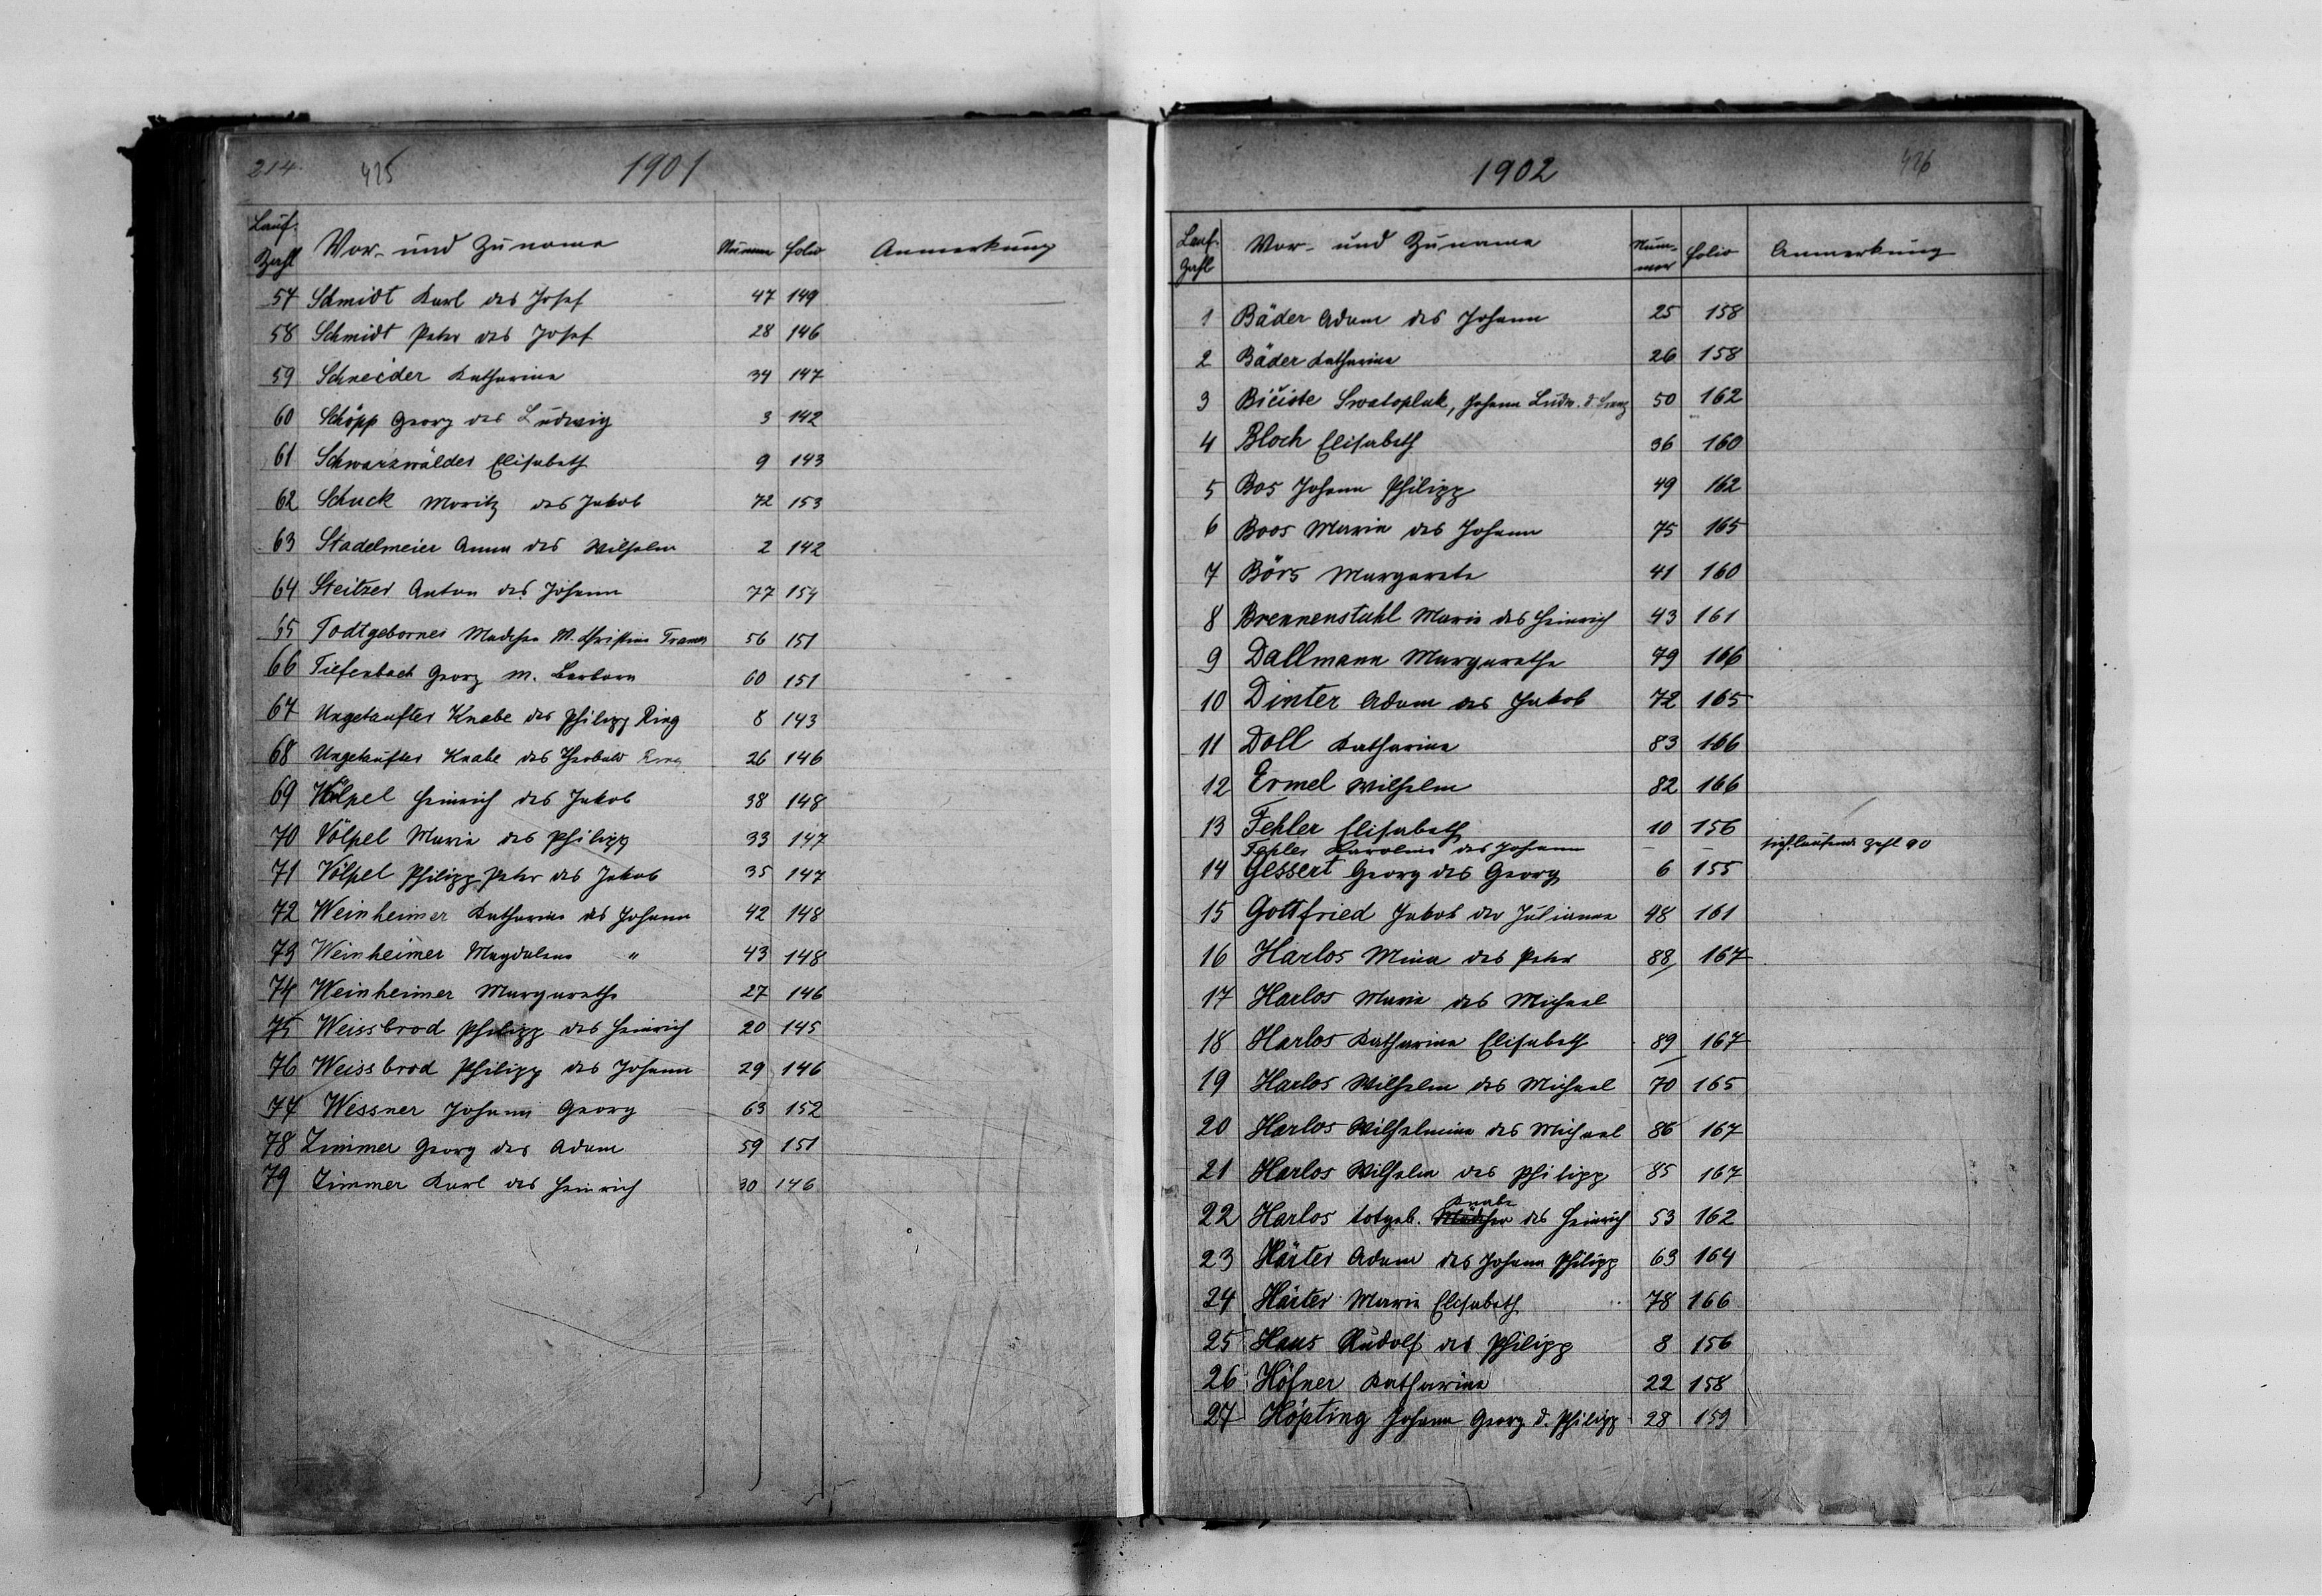 214. 425 1901
Lauf. Zahl Vor- und Zuname Nummer folio Anmerkung
57 Schmidt Karl des Josef 47 149
58 Schmidt Peter des Josef 28 146
59 Schneider Katharina 34 147
60 Schöpp Georg des Ludwig 3 142
61 Schwarzwälder Elisabeth 9 143
62 Schuck Moritz des Jakob 72 153
63 Stadelmeier Anna des Wilhelm 2 142
64 Steitzer Anton des Johann 77 154
65 Todtgebornes Madchen M. Christine 56 151
66 Tiefenbach Georg M. Barbara 60 151
67 Ungetaufter Knabe des Philipp Ring 8 143
68 Ungetaufter Knabe des Theobald Ring 26 146
69 Völpel Heinrich des Jakob 38 148
70 Völpel Maria des Philipp 33 147
71 Völpel Philipp Peter des Jakob 35 147
72 Weinheimer Katharina des Johann 42 148
73 Weinheimer Magdalena " 43 148
74 Weinheimer Margaretha 27 146
75 Weissbrod Philipp des Heinrich 20 145
76 Weissbrod Philipp des Johann 29 146
77 Wessner Johann Georg 63 152
78 Zimmer Georg des Adam 59 151
79 Zimmer Karl des Heinrich 30 146
1902 426
Lauf. Zahl Vor- und Zuname Nummer folio Anmerkung
1 Bäder Adam des Johann 25 158
2 Bäder Katharina 26 158
3 Bičiste Swatopluk, Johann Ludw. d. Franz 50 162
4 Bloch Elisabeth 36 160
5 Bos Johann Philipp 49 162
6 Boos Maria des Johann 75 165
7 Börs Margareta 41 160
8 Brennenstuhl Maria des Heinrich 43 161
9 Dallmann Margaretha 79 166
10 Dinter Adam des Jakob 72 165
11 Doll Katharina 83 166
12 Ermel Wilhelm 82 166
13 Fehler Elisabeth 10 156
Fehler Karolina des Johann — — laufende Zahl 90
14 Gessert Georg des Georg 6 155
15 Gottfried Jakob der Julianna 48 161
16 Harlos Mina des Peter 88 167
17 Harlos Maria des Michael
18 Harlos Katharina Elisabeth 89 167
19 Harlos Wilhelm des Michael 70 165
20 Harlos Wilhelmina des Michael 86 167
21 Harlos Wilhelm des Philipp 85 167
22 Harlos totgeb. Mädchen Knabe des Heinrich 53 162
23 Härter Adam des Johann Philipp 63 164
24 Härter Maria Elisabeth 78 166
25 Haus Rudolf des Philipp 8 156
26 Höfner Katharina 22 158
27 Höpting Johann Georg d. Philipp 28 159